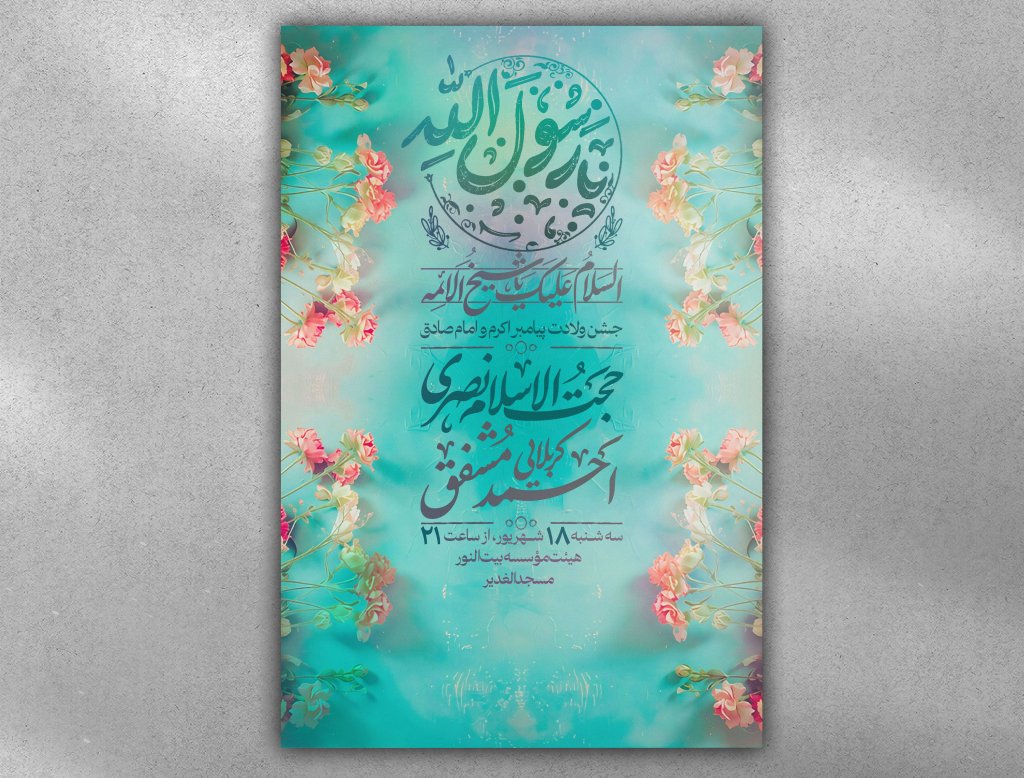 یا رَسُولَ اللهِ
السَلامُ عَلَیکَ یا شیخُ الاَئِمِه
جشن ولادت پیامبر اکرم و امام صادق
حجتُ الاسلام نصری
کربلایی
احمد مُشفق
سه شنبه ۱۸ شهریور، از ساعت ۲۱
هیئت مؤسسه بیت‌النور
مسجدالغدیر